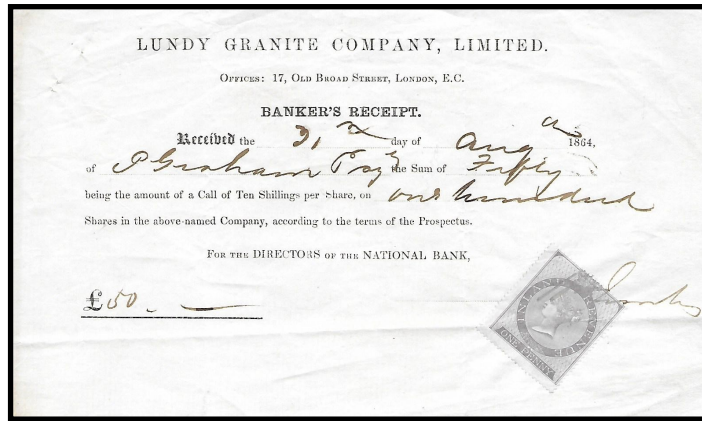 LUNDY GRANITE COMPANY, LIMITED.
OFFICES: 17, OLD BROAD STREET, LONDON, E.C.
BANKER'S RECEIPT.
Received the 31st day of Aug 1864,
of P Graham Esqr the Sum of Fifty
being the amount of a Call of Ten Shillings per Share, on one hundred
Shares in the above-named Company, according to the terms of the Prospectus.
FOR THE DIRECTORS OF THE NATIONAL BANK,
£50.
INLAND REVENUE
ONE PENNY